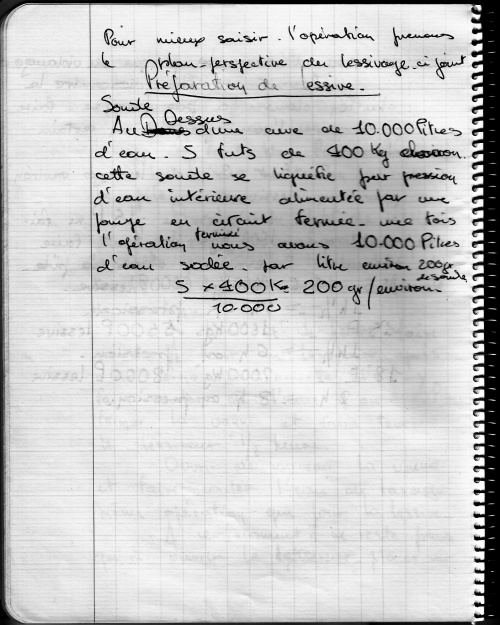 Pour mieux saisir. l'opération prenons
le plan-perspective du lessivage. ci joint
Préparation de lessive.
Soude
Au Dessus d'une cuve de 10.000 litres
d'eau. 5 futs de 400 Kg environ.
cette soude se liquéfie par pression
d'eau intérieure alimentée par une
pompe en circuit fermée. une fois
l'opération terminée nous avons 10.000 litres
d'eau sodée. par litre environ 200gr
de soude
5 x 400 K 200 gr/environ.
10.000